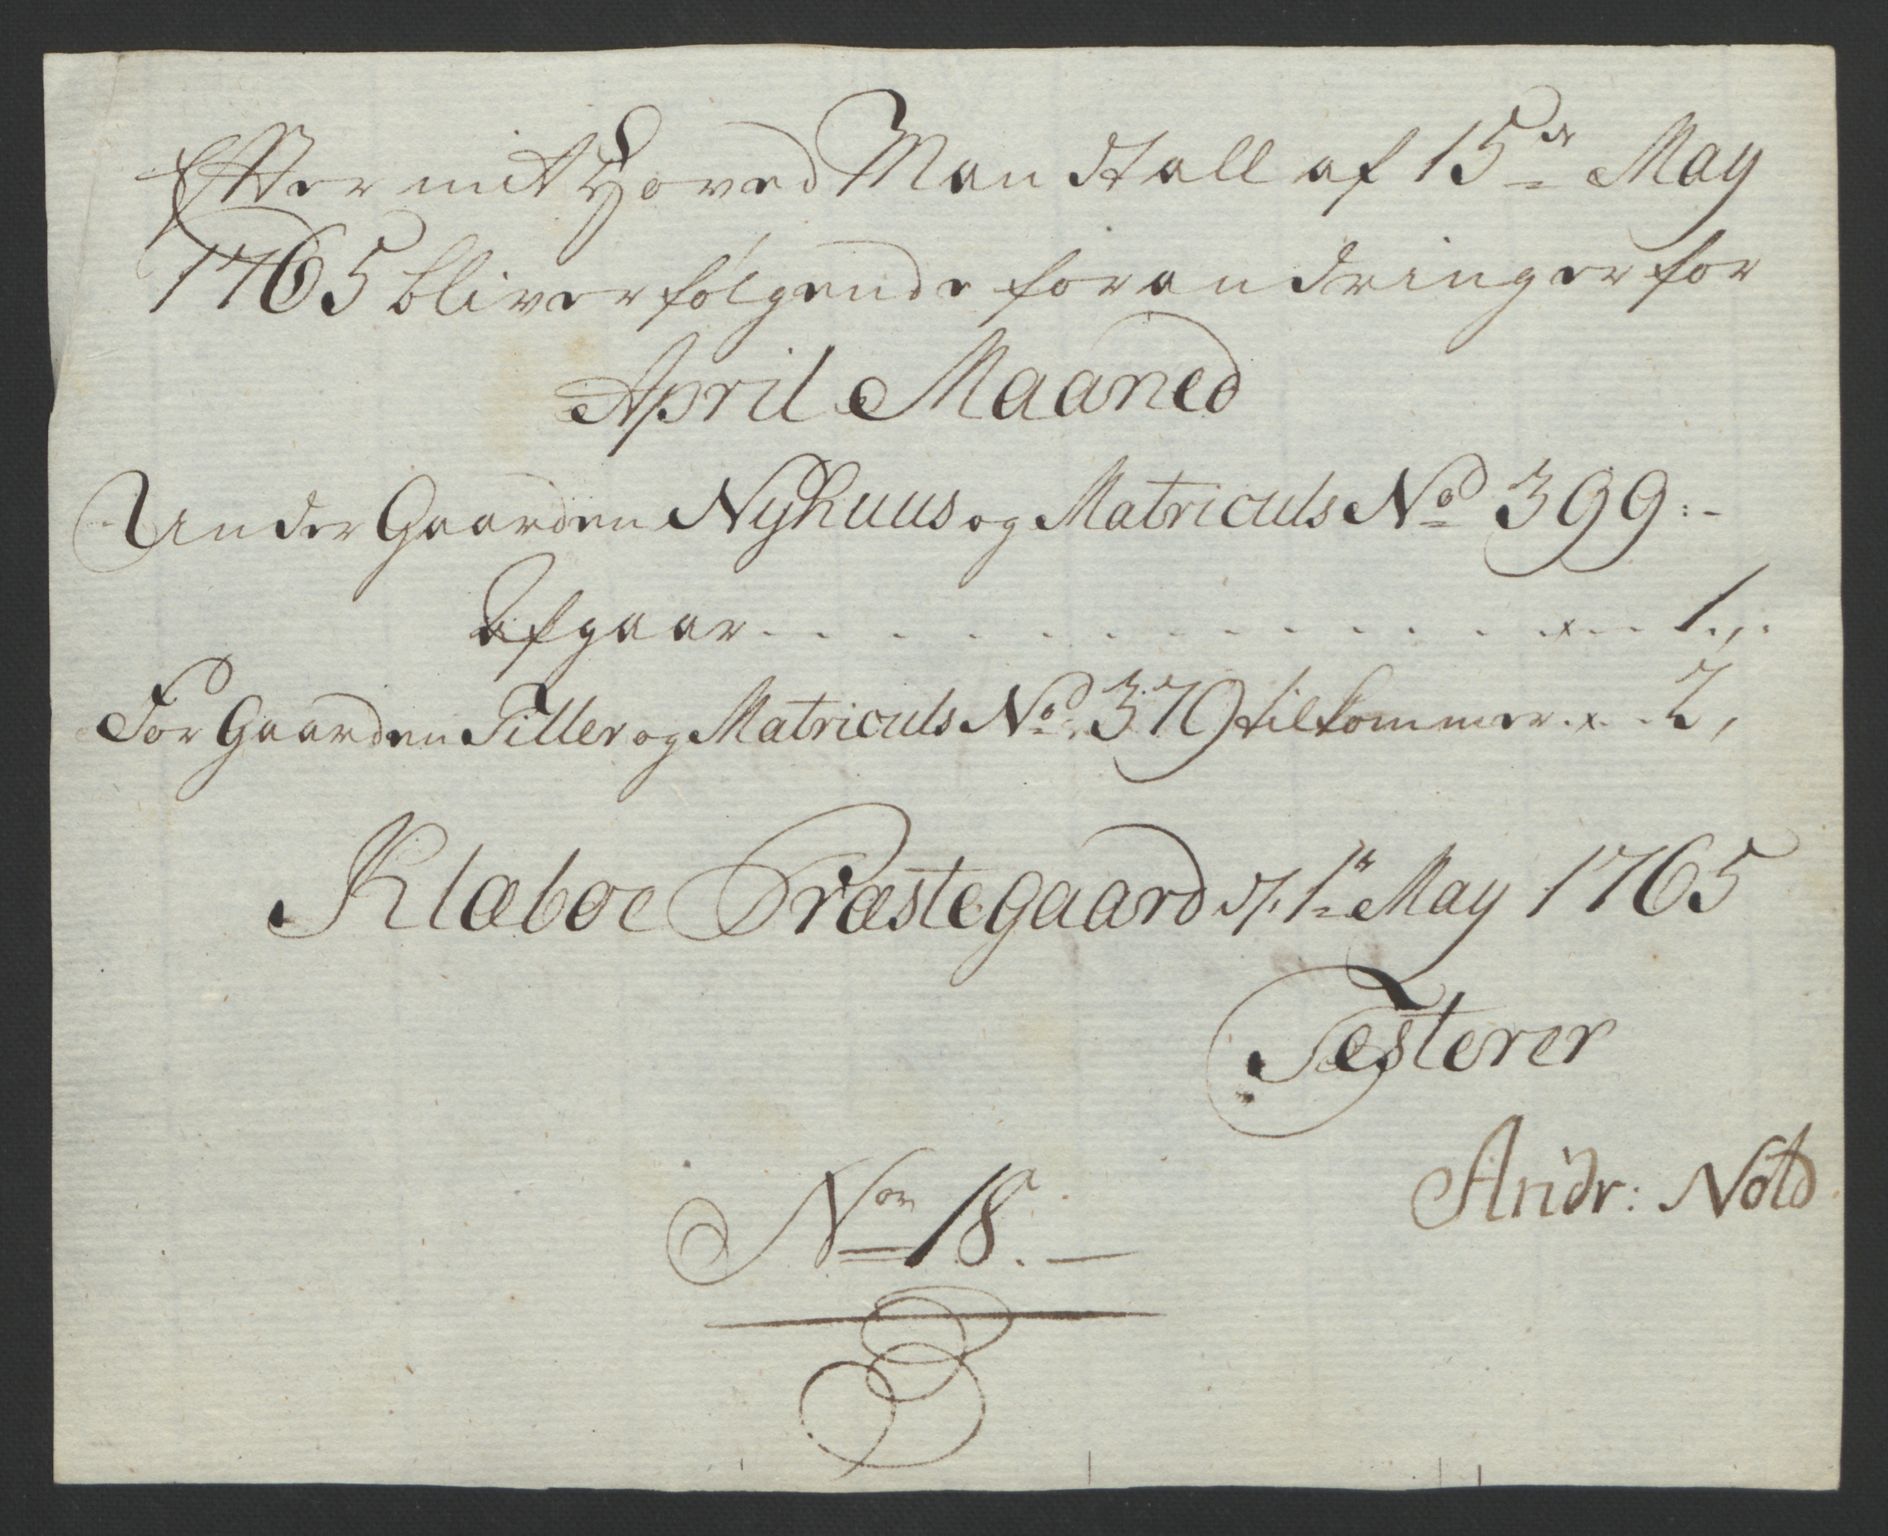 Efter mit Hoved Mandtall af 15de May
1765 bliver følgende forandringer for
April Maaned
Under Gaarden Nyhuus og Matriculs No 399:-
Afgaar . . . . . . . . . . . . . . . . x - 1 . , .
For Gaarden Tiller og Matriculs No. 379 tilkommer . x . . 2 ,
Klæboe Præstegaard d. 1te May 1765
Testerer
Andr: Nold
Nor 18. -